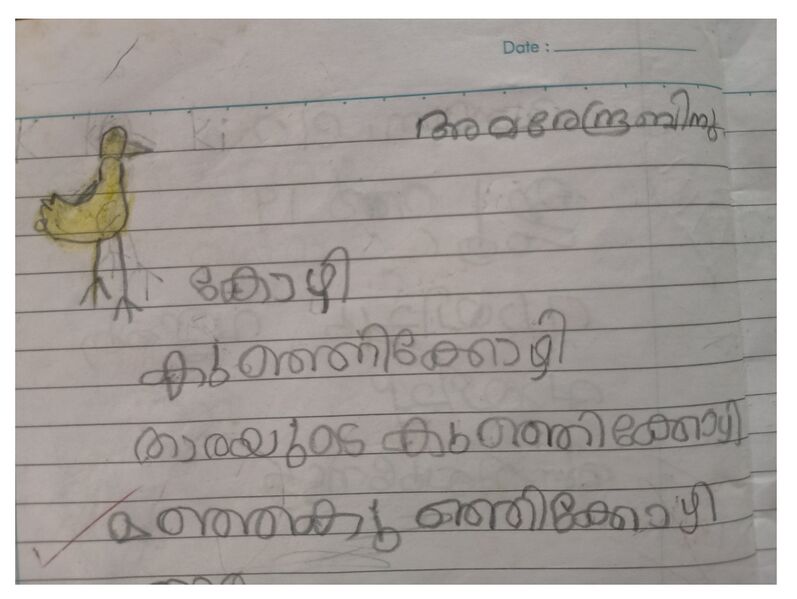 Date :
കോഴി
കുഞ്ഞിക്കോഴി
താരയുടെ കുഞ്ഞിക്കോഴി
മഞ്ഞക്കുഞ്ഞിക്കോഴി